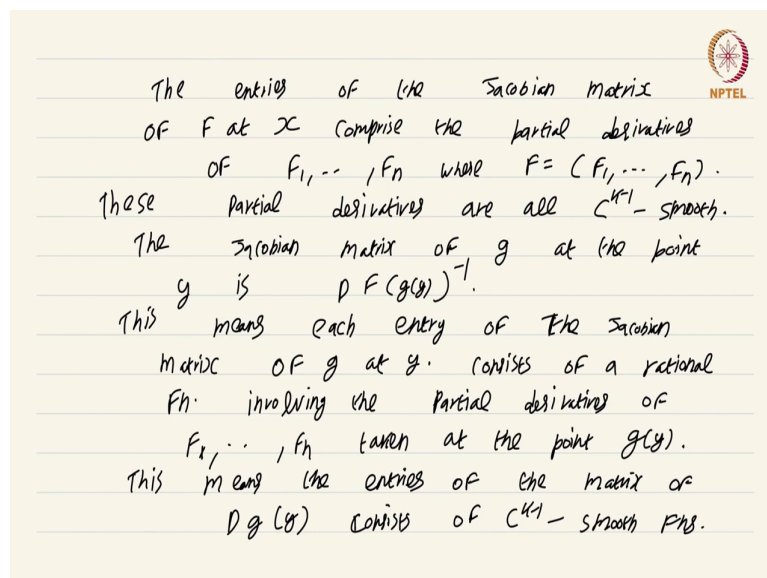 The entries of the Jacobian matrix
NPTEL
of F at x comprise the partial derivatives
of F₁,..,Fₙ where F = (F₁,...,Fₙ).
These partial derivatives are all C^{k-1} - smooth.
The Jacobian matrix of g at the point
y is D F(g(y))^{-1}.
This means each entry of the Jacobian
matrix of g at y. consists of a rational
Fn. involving the partial derivatives of
F₁,..,Fₙ taken at the point g(y).
This means the entries of the matrix of
Dg(y) consists of C^{k-1} - smooth Fns.